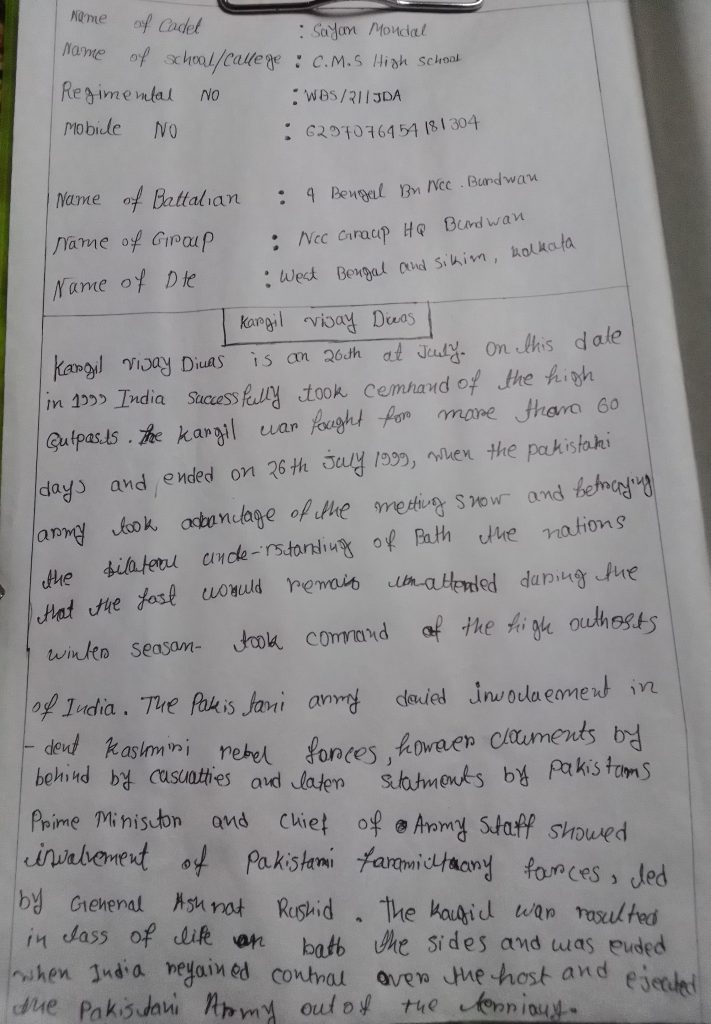 Name of Cadet : Sayan Mondal
Name of school/Callege : C.M.S High School
Regimental NO : WBS/211JDA
Mobile NO : 6297076454181304
Name of Battalian : 9 Bengal Bn Ncc. Burdwan
Name of Group : Ncc Graup HQ Burdwan
Name of Dte : West Bengal and Sikim, Kolkata
Kargil vijay Diwas
Kargil vijay Diwas is an 26th at July. On this date
in 1999 India Successfully took cemmand of the high
outpasts. The Kargil war faught for more tham 60
days and ended on 26th july 1999, when the pakistani
army took advantage of the metting snow and betraying
the bilateral unde-rstanding of Bath the nations
that the fast would remain un-attended during the
winter seasan- took command of the high outhosts
of India. The Pakistani army denied involvement in
-dent Kashmiri rebel forces, however by
behind by casualties and later statments by Pakistams
Prime Minister and chief of Army staff showed
invalvement of Pakistami farces, led
by General Ashrat Rashid. The Kargil war rasulted
in lass of life an bath the sides and was ended
when India regained contral over the host and ejected
the Pakistani Army out of the